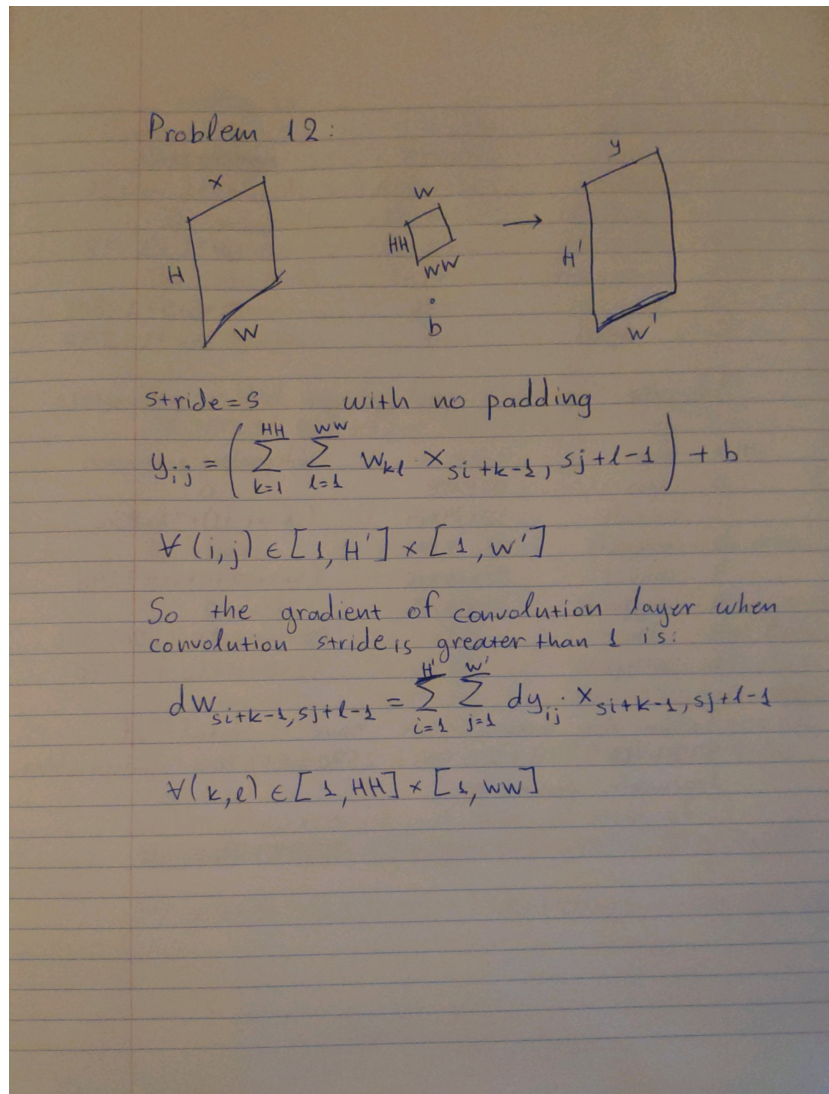 Problem 12:
x
H
W
w
HH
WW
b
→
y
H'
W'
stride=s with no padding
y_{ij} = ( \sum_{k=1}^{HH} \sum_{l=1}^{WW} w_{kl} x_{si+k-1, sj+l-1} ) + b
∀(i,j) ∈ [1, H'] × [1, W']
So the gradient of convolution layer when
convolution stride is greater than 1 is:
dw_{si+k-1, sj+l-1} = \sum_{i=1}^{H'} \sum_{j=1}^{W'} dy_{ij} . x_{si+k-1, sj+l-1}
∀(k,l) ∈ [1, HH] × [1, WW]